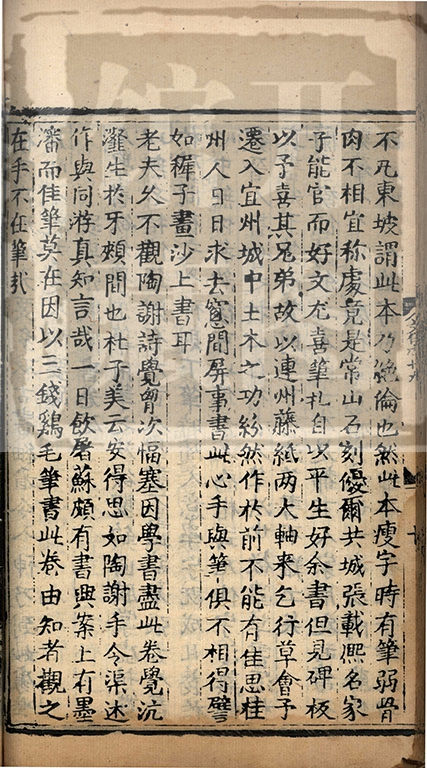 不凡東坡謂此本乃絶倫也然此本瘦字時有筆弱骨
肉不相宜称處竟是常山石刻優爾共城張載熙名家
子能官而好文尤喜筆札自以平生好余書但見碑板
以予喜其兄弟故以連州藤紙两大軸來乞行草會予
遷入宜州城中土木之功紛然作於前不能有佳思桂
州人日日求去窻間屏事書此心手與筆俱不相得譬
如稺子畫沙上書耳
老夫久不觀陶謝詩覺胷次愊塞因學書盡此卷覺沆
瀣生於牙頰間也杜子美云安得思如陶謝手令渠述
作與同游真知言哉一日飲屠蘇頗有書興案上有墨
瀋而佳筆莫在因以三錢鷄毛筆書此卷由知者觀之
在手不在筆哉